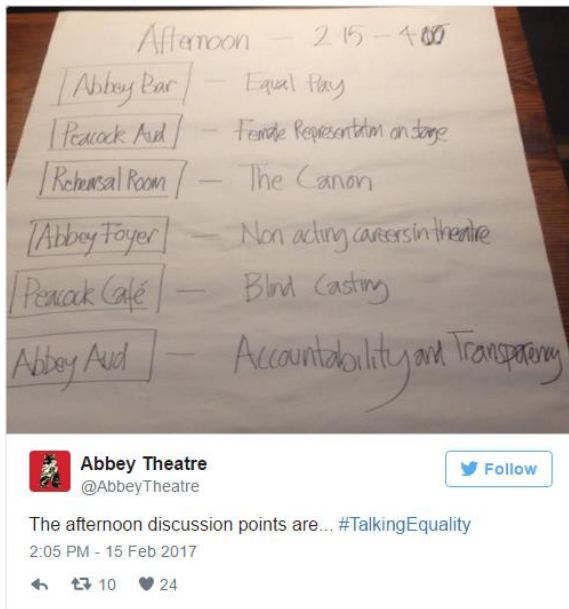 Afternoon — 2 15 - 4 00
Abbey Bar — Equal Pay
Peacock Aud — Female Representation on stage
Rehersal Room — The Canon
Abbey Foyer — Non acting careers in theatre
Peacock Café — Blind Casting
Abbey Aud — Accountability and Transparency
Abbey Theatre
@AbbeyTheatre
Follow
The afternoon discussion points are... #TalkingEquality
2:05 PM - 15 Feb 2017
10 24